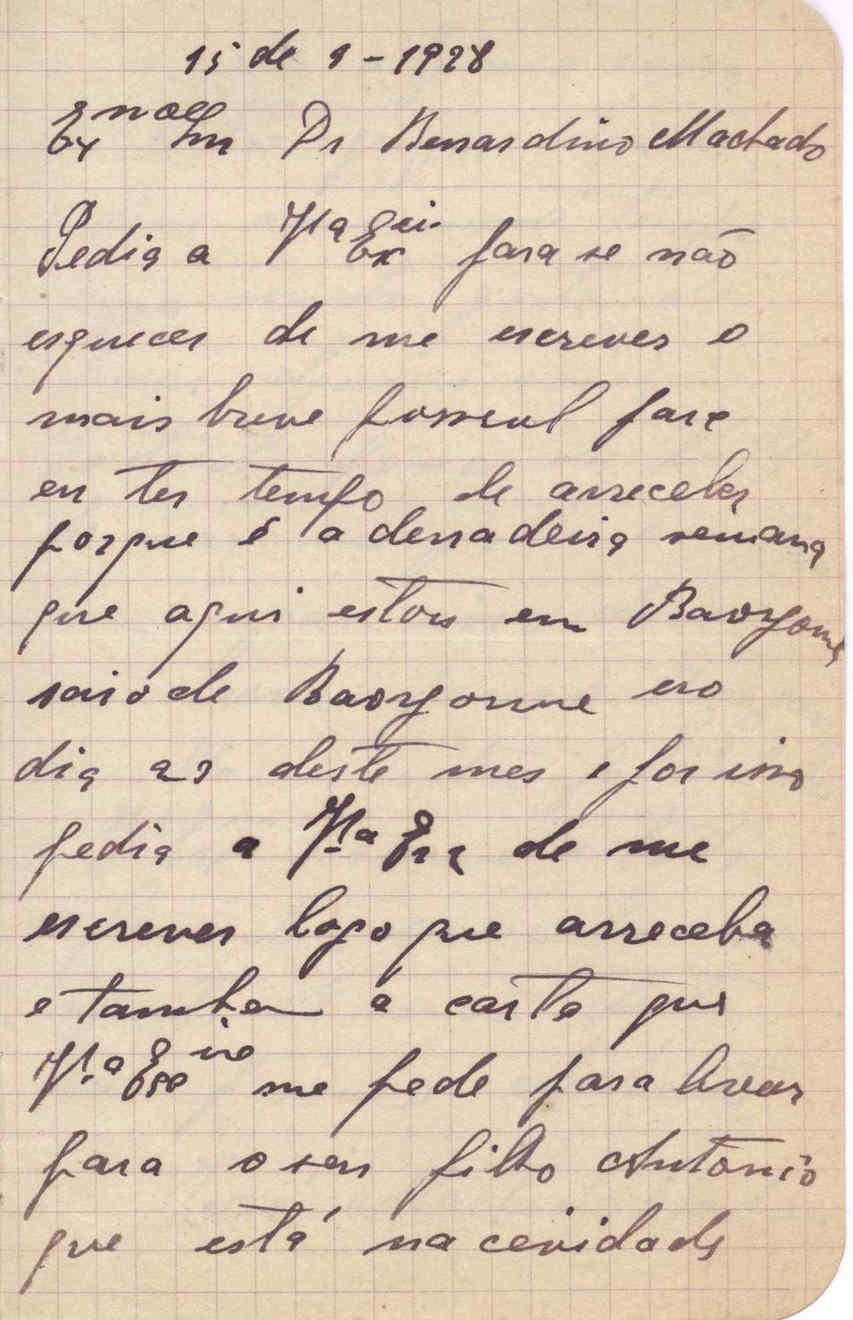 15 de 9-1928
Exmo Snr Dr Bernardino Machado
Pedia a Vª Exci. para se não
esquecer de me escrever o
mais breve possivel para
eu ter tempo de arreceber
porque é a derradeira semana
que aqui estou em Bayonne
saio de Bayonne no
dia 23 deste mes e por isso
pedia a Vª Exª de me
escrever logo que arreceba
e tambem a carta que
Vª Excia me pede para levar
para o seu filho Antonio
que está na cenidade